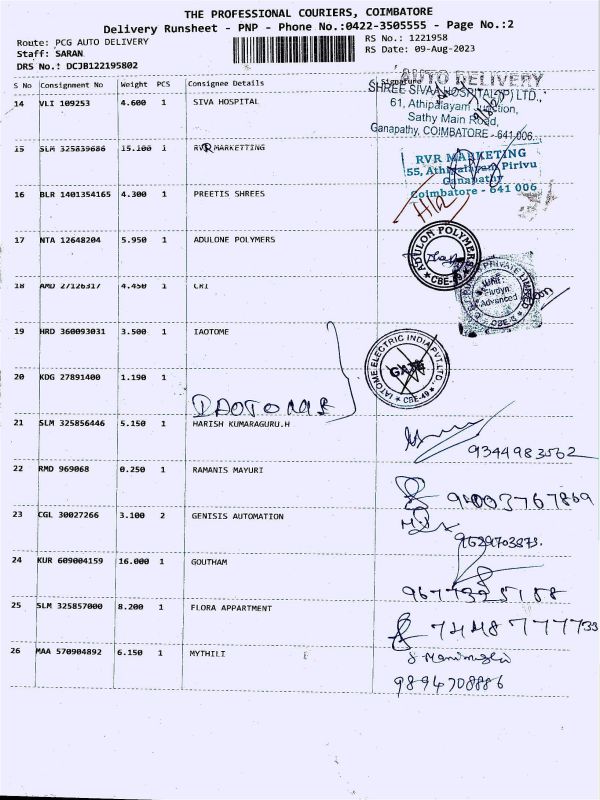 THE PROFESSIONAL COURIERS, COIMBATORE
Delivery Runsheet - PNP - Phone No.:0422-3505555 - Page No.:2
Route: PCG AUTO DELIVERY
RS No.: 1221958
Staff: SARAN
RS Date: 09-Aug-2023
DRS No.: DCJB122195802
S No Consignment No Weight PCS Consignee Details Signature
AUTO DELIVERY
14 VLI 109253 4.600 1 SIVA HOSPITAL
SHREE SIVAA HOSPITAL (P) LTD.,
61, Athipalayam Junction,
Sathy Main Road,
Ganapathy, COIMBATORE - 641 006.
15 SLM 325839686 15.100 1 RVR MARKETTING
RVR MARKETING
55, Athipalayam Pirivu
Ganapathy
Coimbatore - 641 006
16 BLR 1401354165 4.300 1 PREETIS SHREES
17 NTA 12648204 5.950 1 ADULONE POLYMERS
ADULON POLYMERS
CBE-49
18 AMD 27126317 4.450 1 CRI
PRIVATE LIMITED
Unit :
Fludyn
Advanced
CBE
19 HRD 360093031 3.500 1 IAOTOME
IATOME ELECTRIC INDIA PVT.LTD.
GATE
CBE-49
20 KDG 27891400 1.190 1
21 SLM 325856446 5.150 1 HARISH KUMARAGURU.H
9344983562
22 RMD 969068 0.250 1 RAMANIS MAYURI
9003767869
23 CGL 30027266 3.100 2 GENISIS AUTOMATION
9629703873.
24 KUR 609004159 16.000 1 GOUTHAM
25 SLM 325857000 8.200 1 FLORA APPARTMENT
7448777733
26 MAA 570904892 6.150 1 MYTHILI
9894708886